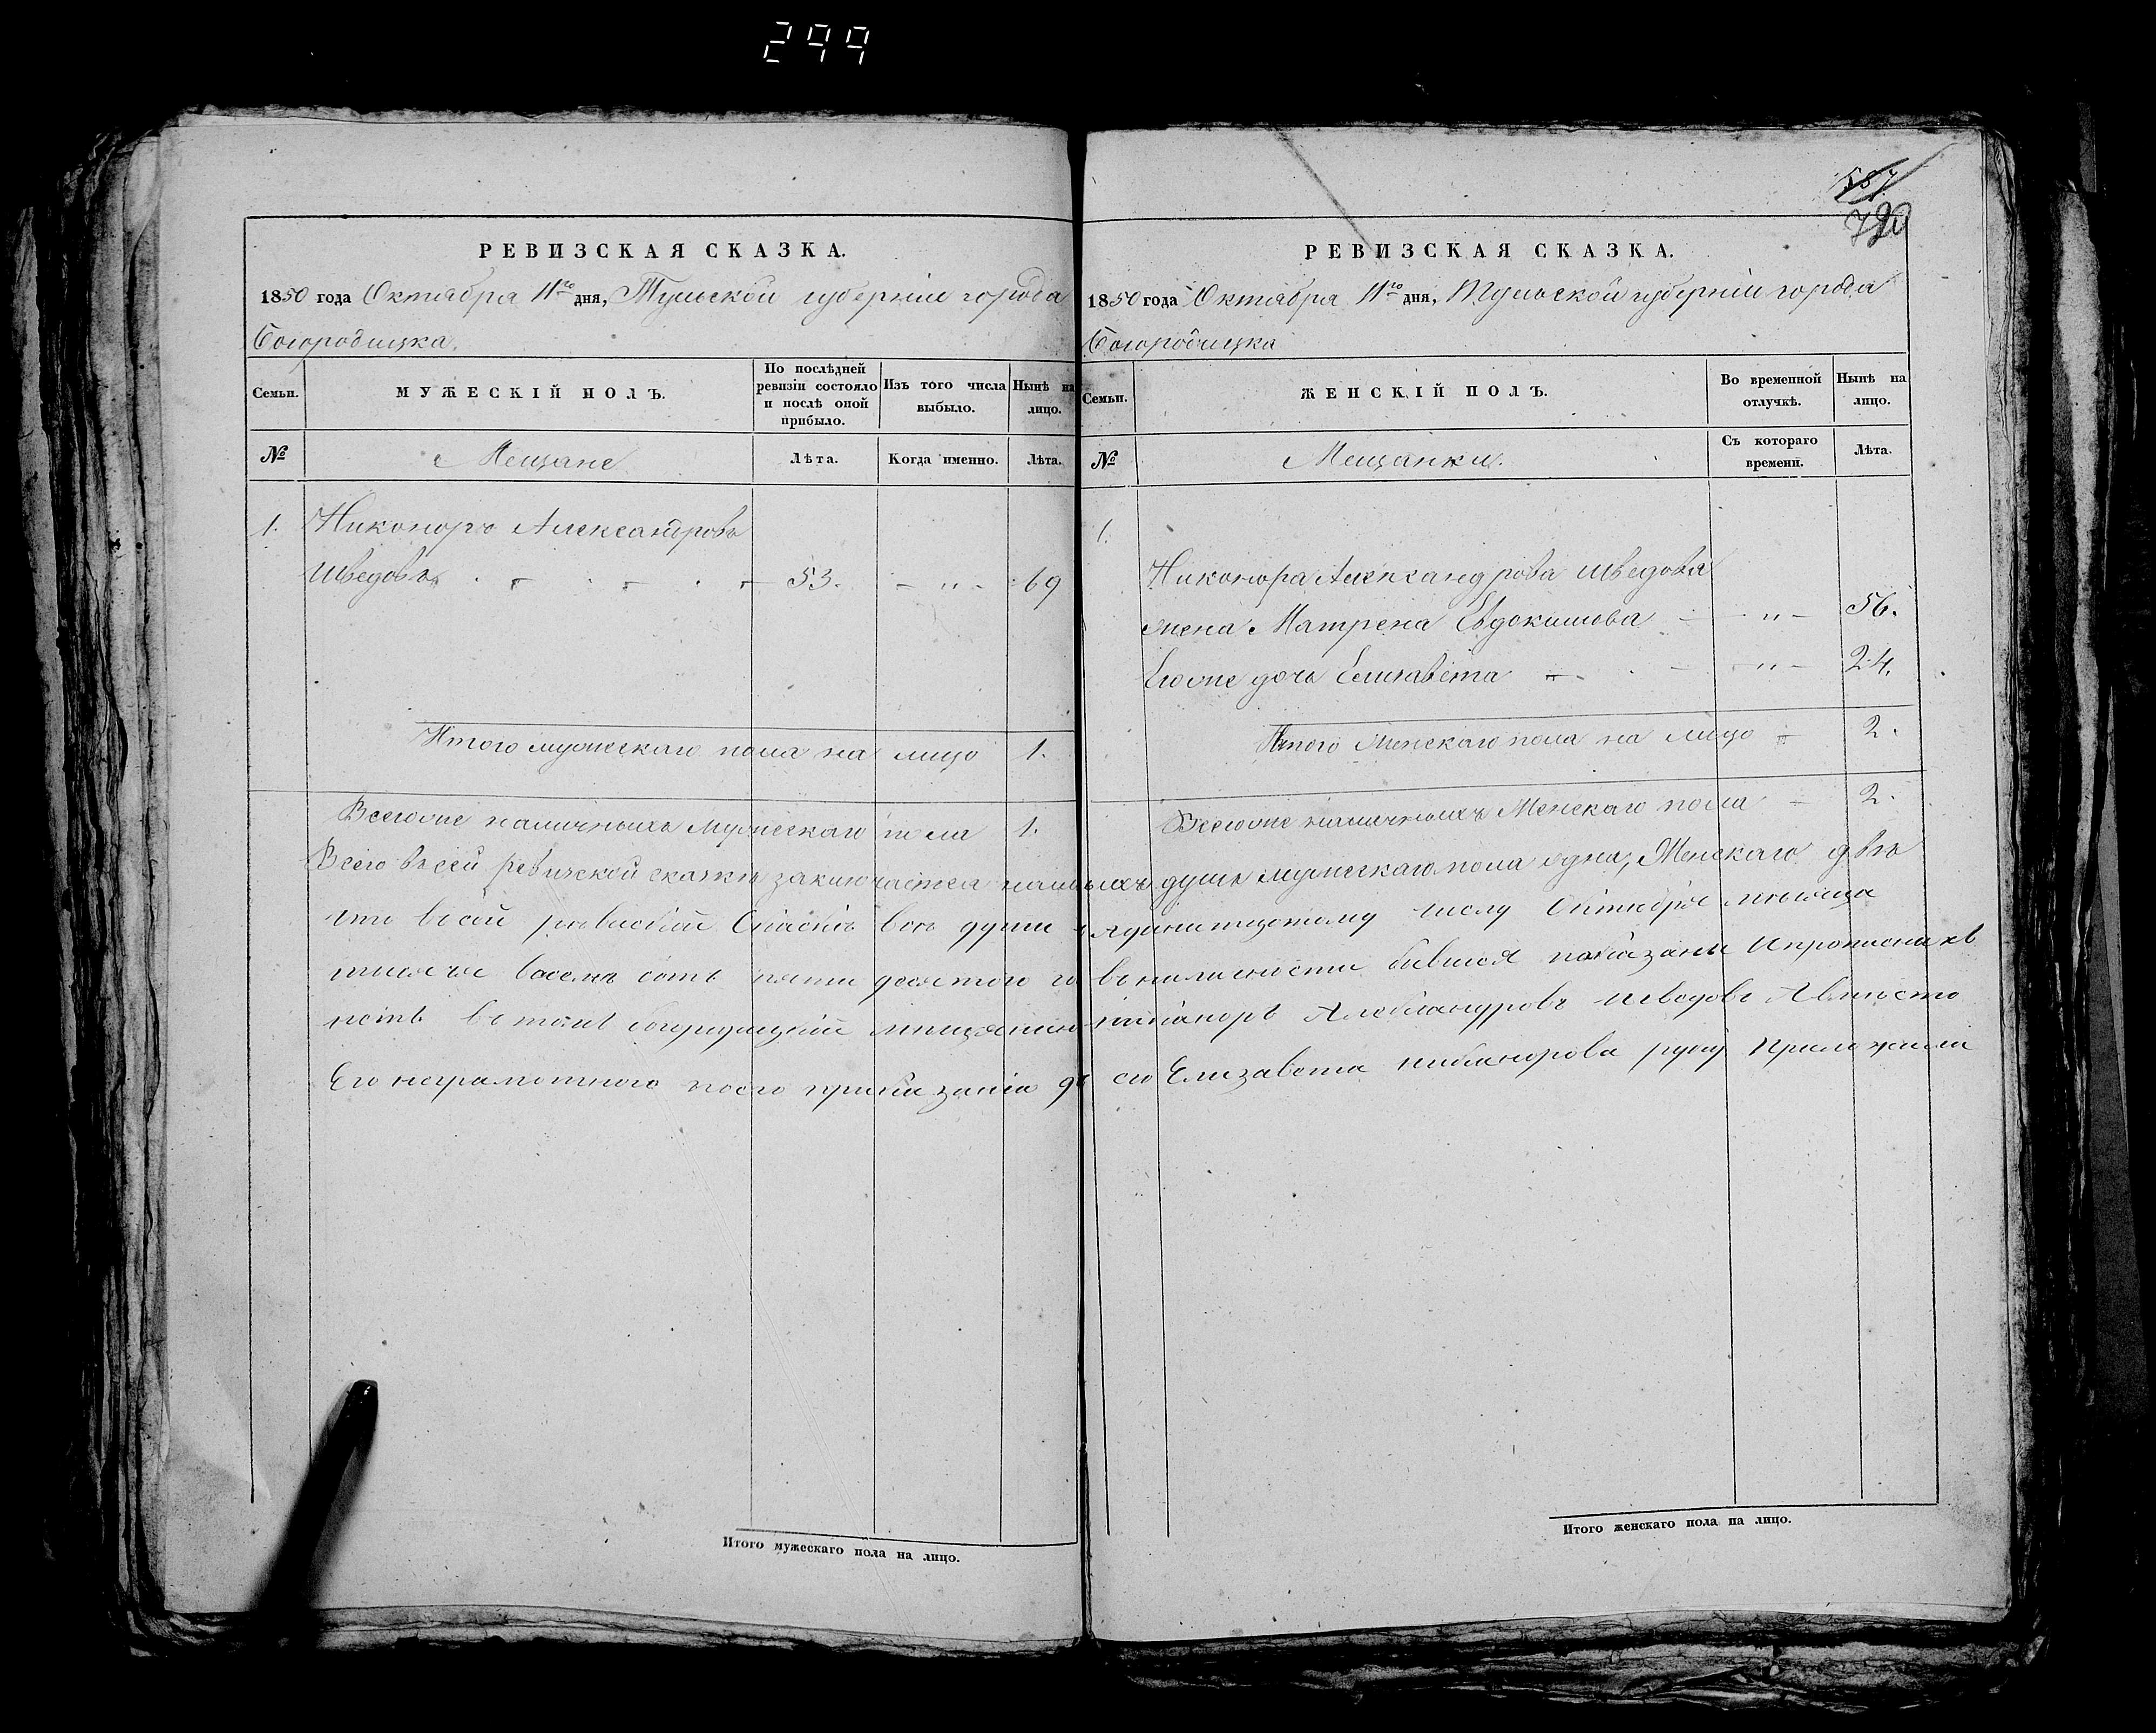 299
587
720
РЕВИЗСКАЯ СКАЗКА.
1850 года Октября 11го дня, Тульской губернiи города
Богородицка.
Семьи.
МУЖЕСКІЙ ПОЛЪ.
По послѣдней
ревизіи состояло
и послѣ оной
прибыло.
Изъ того числа
выбыло.
Нынѣ на
лицо.
№
Мещане
Лѣта.
Когда именно.
Лѣта.
1. Никоноръ Александровъ
Шведовъ 53. - " - 69
Итого мужескаго пола на лицо 1.
Всегоже наличныхъ мужескаго пола 1.
РЕВИЗСКАЯ СКАЗКА.
1850 года Октября 11го дня, Тульской губернiи города
Богородицка
Семьи.
ЖЕНСКІЙ ПОЛЪ.
Во временной
отлучкѣ.
Нынѣ на
лицо.
№
Мещанки.
Съ котораго
времени.
Лѣта.
1.
Никонора Александрова Шведова
жена Матрена Евдокимова - " - 56.
Егоже дочь Елизавета - " - 24.
Итого Женскаго пола на лицо 2.
Всегоже наличныхъ Женскаго пола 2.
Всего въ сей ревизской сказкѣ заключается душъ мужескаго пола одна, Женскаго двѣ
что всей Скаскѣ всѣ души числу месяца
восемь сотъ пяти десятого в наличности бывшоя паказаны
нетъ в томъ богородицкой никаноръ Александровъ шведовъ
Его неграмотного поего приказанiю его Елизавета никанорова руку Приложила
Итого мужескаго пола на лицо.
Итого женскаго пола на лицо.